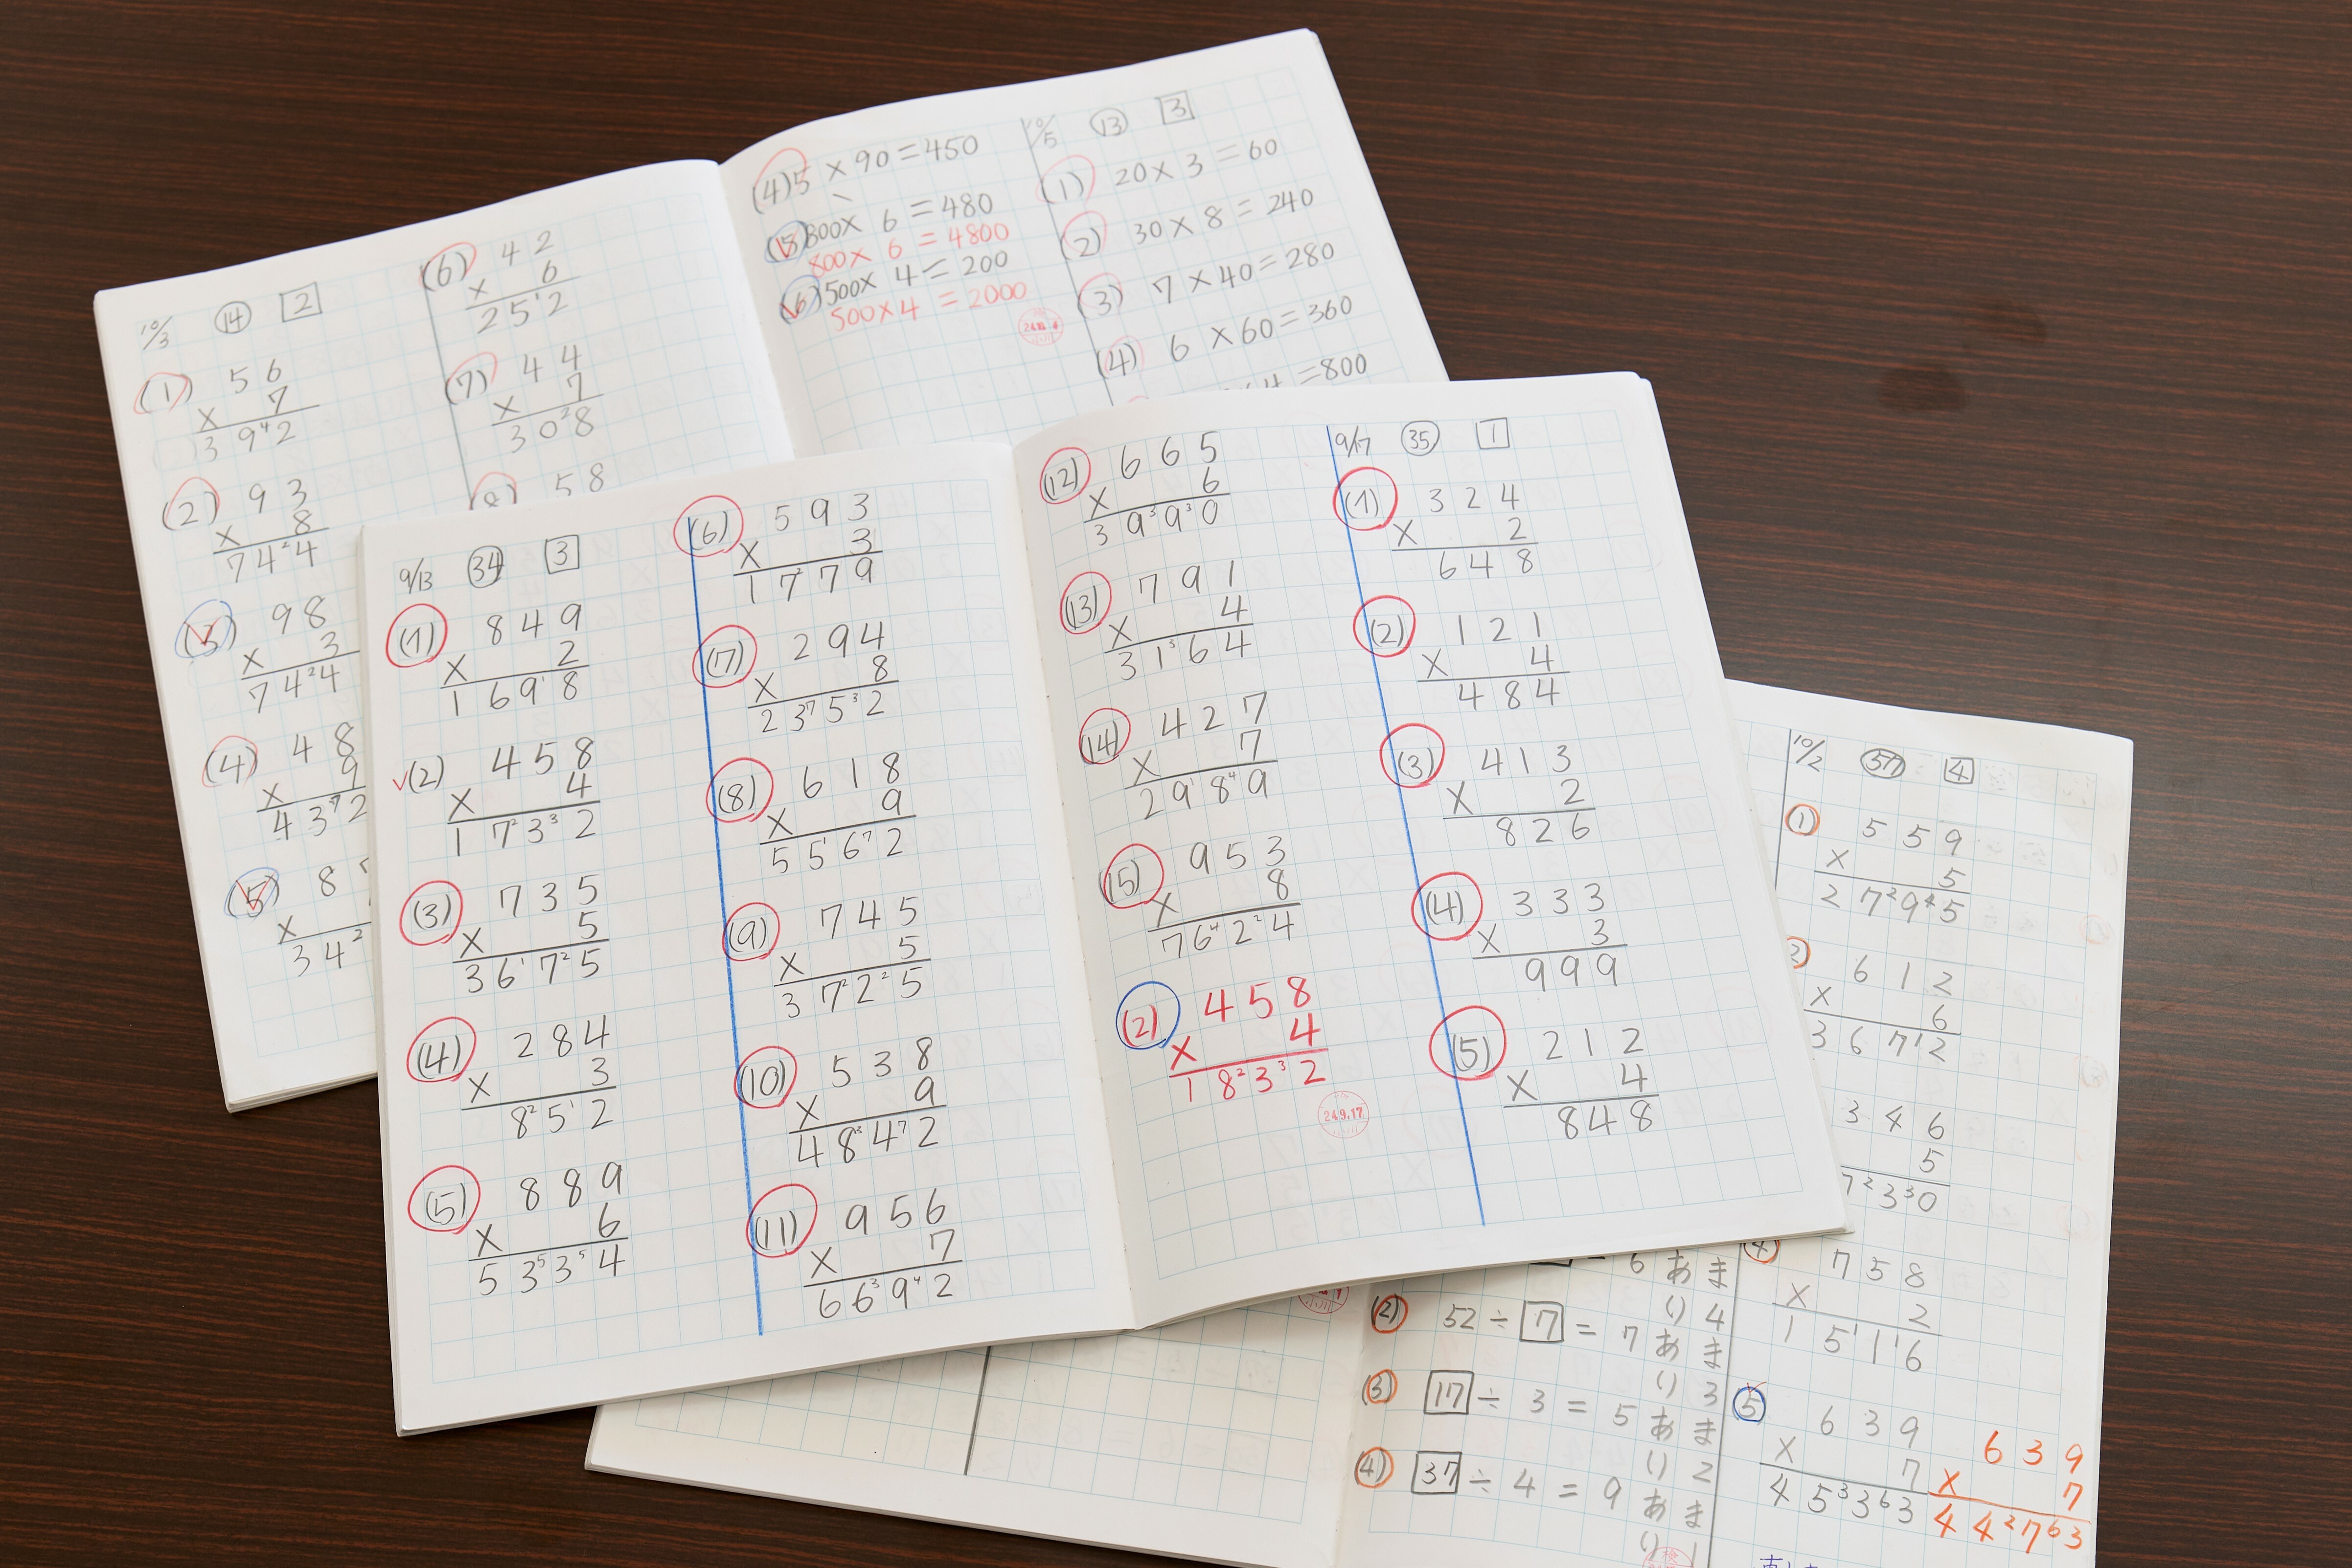 10/3 ⑭ 2
(1) 56
× 7
39⁴2
(2) 93
× 8
74²4
(3) 98
× 3
74²4
(4) 48
× 9
43⁷2
(5) 8
×
34²
(6) 42
× 6
25¹2
(7) 44
× 7
30²8
(8) 58
(4) 5 × 90 = 450
(5) 800 × 6 = 480
800 × 6 = 4800
(6) 500 × 4 = 200
500 × 4 = 2000
10/5 ⑬ 3
(1) 20 × 3 = 60
(2) 30 × 8 = 240
(3) 7 × 40 = 280
(4) 6 × 60 = 360
4 = 800
9/13 ㉞ 3
(1) 849
× 2
169¹8
(2) 458
× 4
17²3³2
(3) 735
× 5
36¹7²5
(4) 284
× 3
8²5¹2
(5) 889
× 6
53⁵3⁵4
(6) 593
× 3
17²79
(7) 294
× 8
23⁷5³2
(8) 618
× 9
55¹6⁷2
(9) 745
× 5
37²2²5
(10) 538
× 9
48³4⁷2
(11) 956
× 7
66³9⁴2
(12) 665
× 6
39³9³0
(13) 791
× 4
31³64
(14) 427
× 7
29¹8⁴9
(15) 953
× 8
76⁴2²4
(2) 458
× 4
18²3³2
24.9.17
9/17 ㉟ 1
(1) 324
× 2
648
(2) 121
× 4
484
(3) 413
× 2
826
(4) 333
× 3
999
(5) 212
× 4
848
= 6 あまり 4
(2) 52 ÷ 7 = 7 あまり 3
(3) 17 ÷ 3 = 5 あまり 2
(4) 37 ÷ 4 = 9 あまり 1
10/2 ㊲ 4
① 559
× 5
27²9⁴5
2) 612
× 6
367¹2
346
5
7²3³0
④ 758
× 2
15¹1¹6
⑤ 639
× 7
45³3⁶3
639
× 7
44²7⁶3